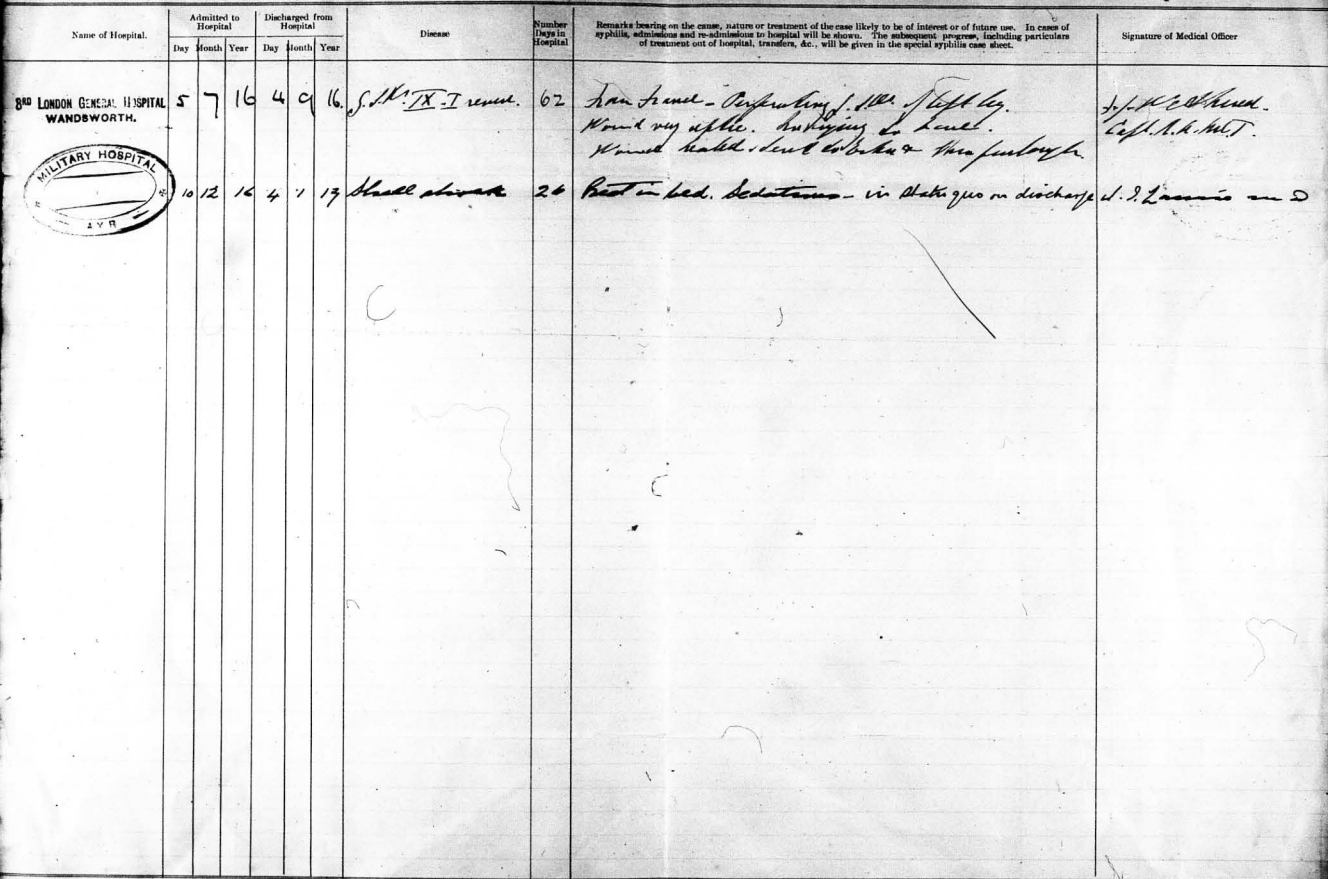 Name of Hospital.
Admitted to Hospital
Discharged from Hospital
Day Month Year Day Month Year
Disease
Number Days in Hospital
Remarks bearing on the cause, nature or treatment of the case likely to be of interest or of future use. In cases of
syphilis, admissions and re-admissions to hospital will be shown. The subsequent progress, including particulars
of treatment out of hospital, transfers, &c., will be given in the special syphilis case sheet.
Signature of Medical Officer
3RD LONDON GENERAL HOSPITAL
WANDSWORTH.
5 7 16 4 9 16. IX-I 62 From France - Perforating of left leg.
Wound very septic.
Wound healed & sent to
Capt. R.A.M.C.T.
MILITARY HOSPITAL
AYR
10 12 16 4 1 17 Shell shock 26 Rest in bed. Sedatives - in status quo on discharge